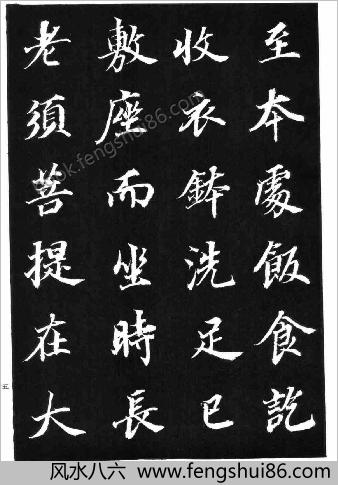 至本處飯食訖
收衣鉢洗足已
敷座而坐時長
老須菩提在大
五
book.fengshui86.com
风水八六 www.fengshui86.com